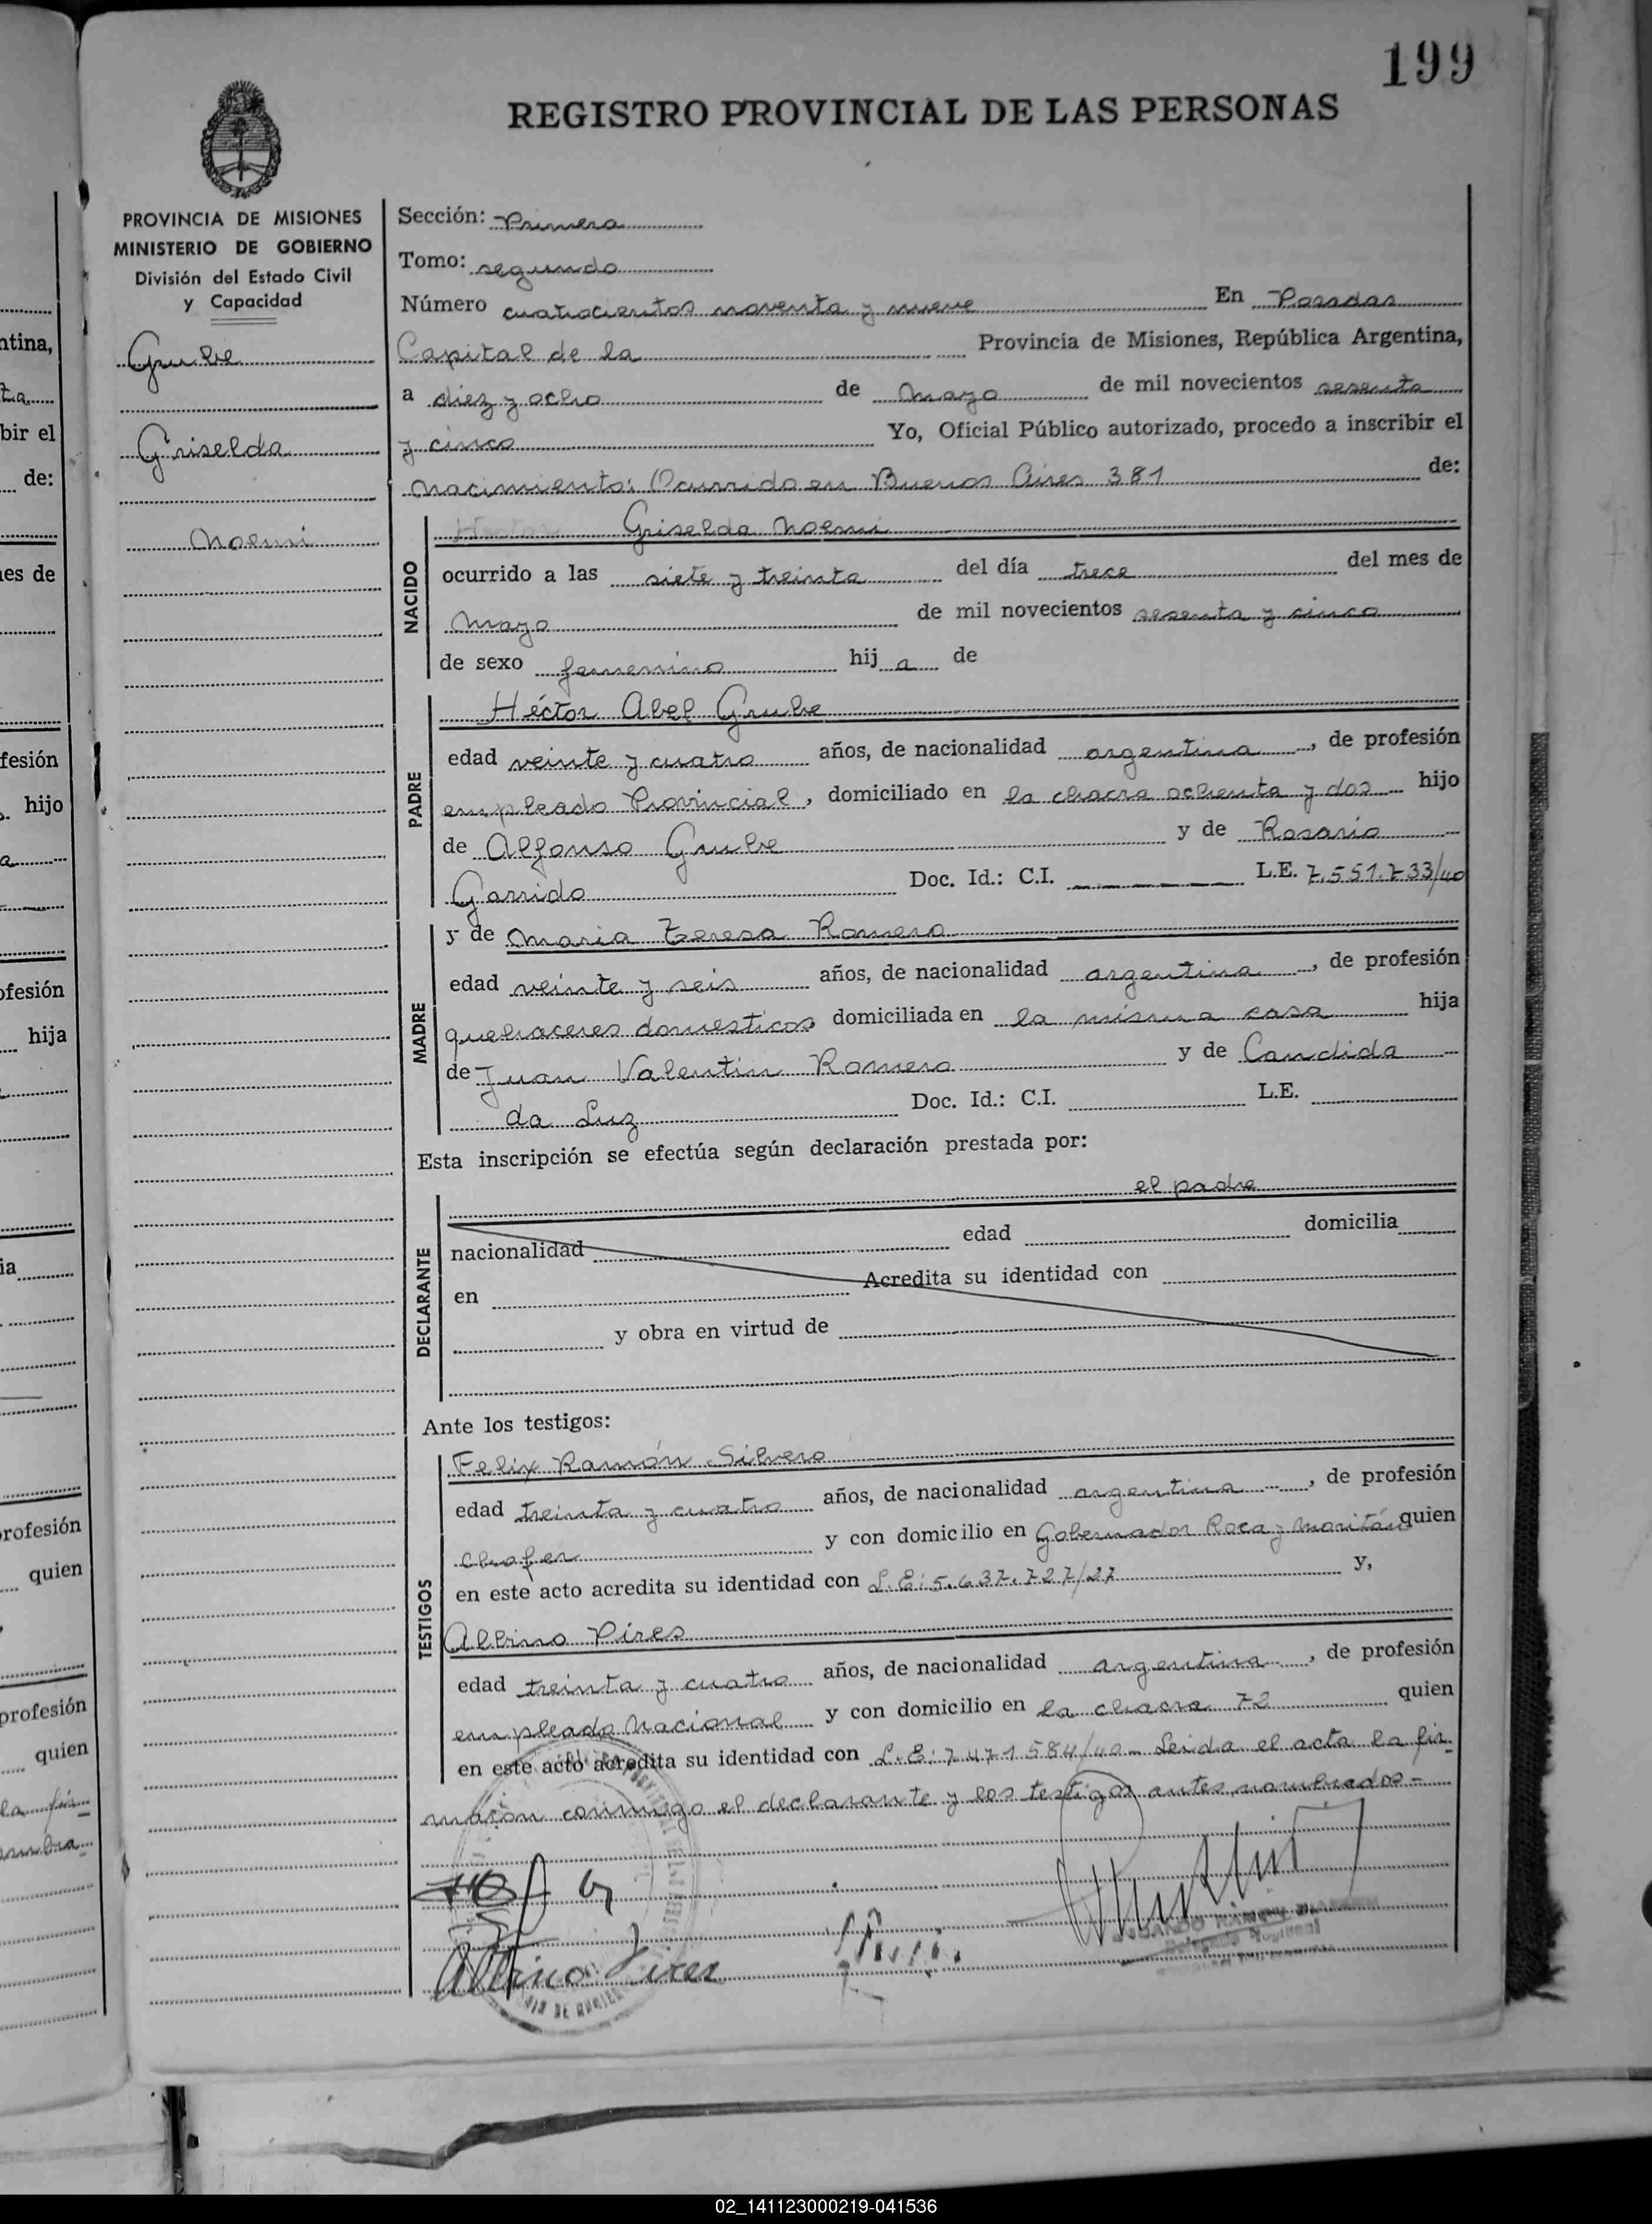 199
REGISTRO PROVINCIAL DE LAS PERSONAS
PROVINCIA DE MISIONES
MINISTERIO DE GOBIERNO
División del Estado Civil
y Capacidad
Grube
Griselda
Noemi
Sección: Primera
Tomo: segundo
Número cuatrocientos noventa y nueve En Posadas
Capital de la Provincia de Misiones, República Argentina,
a diez y ocho de Mayo de mil novecientos sesenta
y cinco Yo, Oficial Público autorizado, procedo a inscribir el
Nacimiento: Ocurrido en Buenos Aires 381 de:
NACIDO
Griselda Noemi
ocurrido a las siete y treinta del día trece del mes de
Mayo de mil novecientos sesenta y cinco
de sexo femenino hij a de
PADRE
Héctor Abel Grube
edad veinte y cuatro años, de nacionalidad argentina, de profesión
empleado Provincial, domiciliado en la chacra ochenta y dos hijo
de Alfonso Grube y de Rosario
Garrido Doc. Id.: C.I. L.E. 7.551.733/40
MADRE
y de Maria Teresa Romero
edad veinte y seis años, de nacionalidad argentina, de profesión
quehaceres domesticos domiciliada en la misma casa hija
de Juan Valentin Romero y de Candida
da Luz Doc. Id.: C.I. L.E.
Esta inscripción se efectúa según declaración prestada por:
el padre
DECLARANTE
nacionalidad edad domicilia
en Acredita su identidad con
y obra en virtud de
Ante los testigos:
TESTIGOS
Felix Ramón Silvero
edad treinta y cuatro años, de nacionalidad argentina, de profesión
chofer y con domicilio en Gobernador Roca y Maritán quien
en este acto acredita su identidad con L.E: 5.637.727/27 y,
Albino Pires
edad treinta y cuatro años, de nacionalidad argentina, de profesión
empleado Nacional y con domicilio en la chacra 72 quien
en este acto acredita su identidad con L.E: 7471584/40- Leida el acta la fir-
maron conmigo el declarante y los testigos antes nombrados-
Albino Pires
02_141123000219-041536